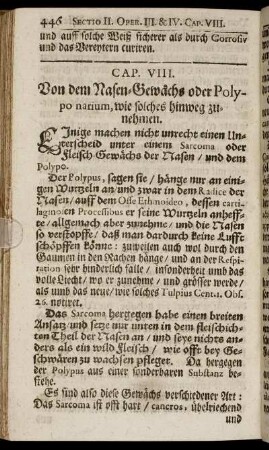 446 SECTIO II. OPER. III. & IV. CAP. VIII.
und auff solche Weiß sicherer als durch Corrosiv
und das Vereytern curiren.
CAP. VIII.
Von dem Nasen-Gewächs oder Poly-
po narium, wie solches hinweg zu-
nehmen.
EInige machen nicht unrecht einen Un-
terscheid unter einem Sarcoma oder
Fleisch Gewächs der Nasen / und dem
Polypo.
Der Polypus, sagen sie / hänge nur an einigen
Wurtzeln an und zwar in dem Radice der
Nasen / auff dem Osse Ethmoideo, dessen carti-
laginosen Processibus er seine Wurtzeln anheff-
te / allgemach aber zunehme / und die Nasen
so verstopffe / daß man dardurch keine Lufft
schöpffen könne: zuweilen auch wol durch den
Gaumen in den Rachen hänge / und an der Respi-
ration sehr hinderlich falle / insonderheit umb das
volle Liecht / wo er zunehme / und grösser werde /
als umb das neue / wie solches Tulpius Cent. 1. Obs.
26. notiret.
Das Sarcoma hergegen habe einen breiten
Ansatz / und setze nur unten in dem fleischich-
ten Theil der Nasen an / und seye nichts an-
ders als ein wild Fleisch / wie offt bey Ge-
schwären zu wachsen pfleget. Da hergegen
der Polypus aus einer sonderbaren Substanz be-
stehe.
Es sind also diese Gewächs verschiedener Art:
Das Sarcoma ist offt hart / cancros, übelriechend
und